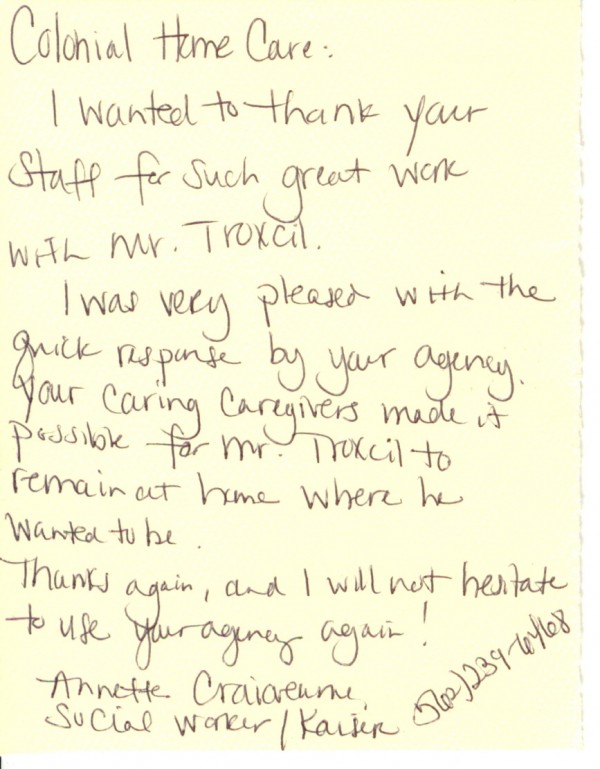 Colonial Home Care:
I wanted to thank your
staff for such great work
with Mr. Troxcil.
I was very pleased with the
quick response by your agency.
Your caring caregivers made it
possible for Mr. Troxcil to
remain at home where he
wanted to be.
Thanks again, and I will not hesitate
to use your agency again!
Annette
Social Worker/Kaiser
(562)239-6468